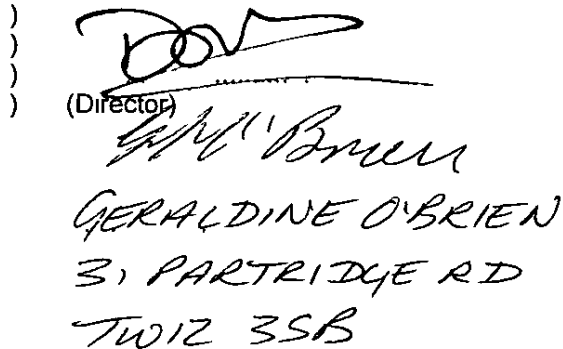 )
)
)
) (Director)
O'Brien
GERALDINE O'BRIEN
31 PARTRIDGE RD
TW12 3SB